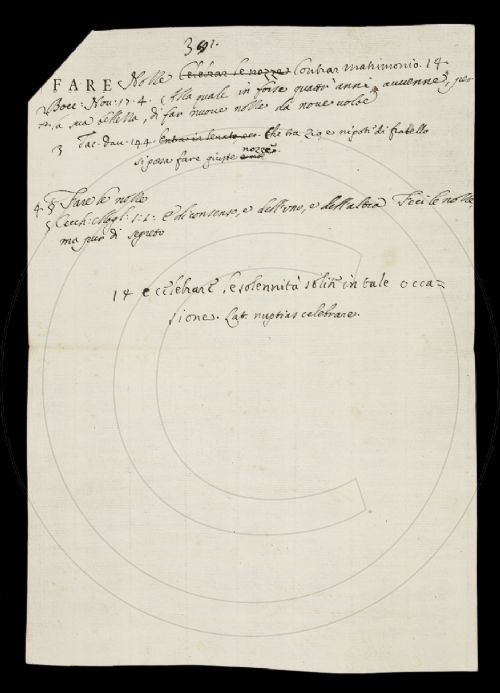 391.
FARE Nozze. Celebrar le nozze Contrar matrimonio. 14
Bocc: Nov: 17. 4. Alla quale in forse quattro anni avvenne, per
sua bellezza, di far nuove nozze da nove volte
3 Tac: Dav: 144. Entrar in senato ec. Che tra Zio, e nipoti di fratello
si possa fare giuste nozze
4 § Fare le nozze
§ Cecch: Mogl: 1: 1: E di consenso, e dell'uno, e dell'altra Feci le nozze
ma pur di segreto
14 e celebrare, le solennità solite in tale occa=
sione. Lat. nuptias celebrare.